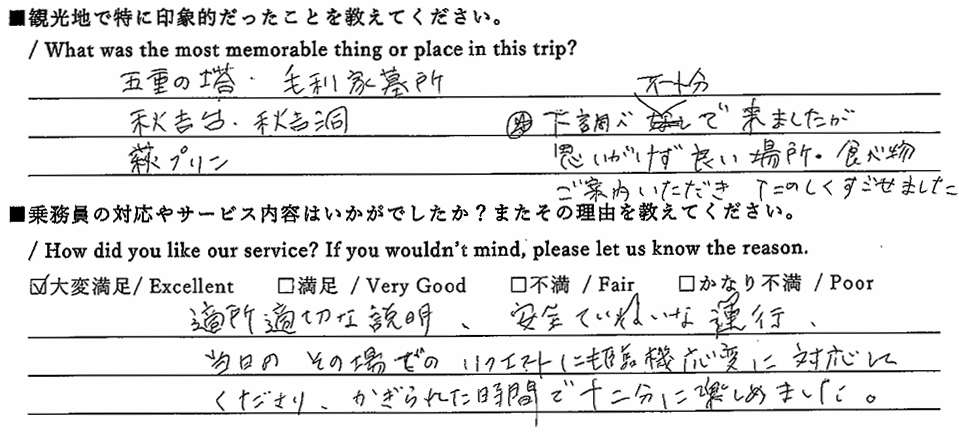 ■観光地で特に印象的だったことを教えてください。
/ What was the most memorable thing or place in this trip?
五重の塔・毛利家墓所
秋吉台・秋吉洞
萩プリン
不十分
下調べ で来ましたが
思いがけず良い場所・食べ物
ご案内いただき たのしくすごせました
■乗務員の対応やサービス内容はいかがでしたか？またその理由を教えてください。
/ How did you like our service? If you wouldn't mind, please let us know the reason.
☑大変満足 / Excellent □満足 / Very Good □不満 / Fair □かなり不満 / Poor
適所適切な説明、安全ていねいな運行、
当日のその場でのリクエストにも臨機応変に対応して
くださり、かぎられた時間で十二分に楽しめました。